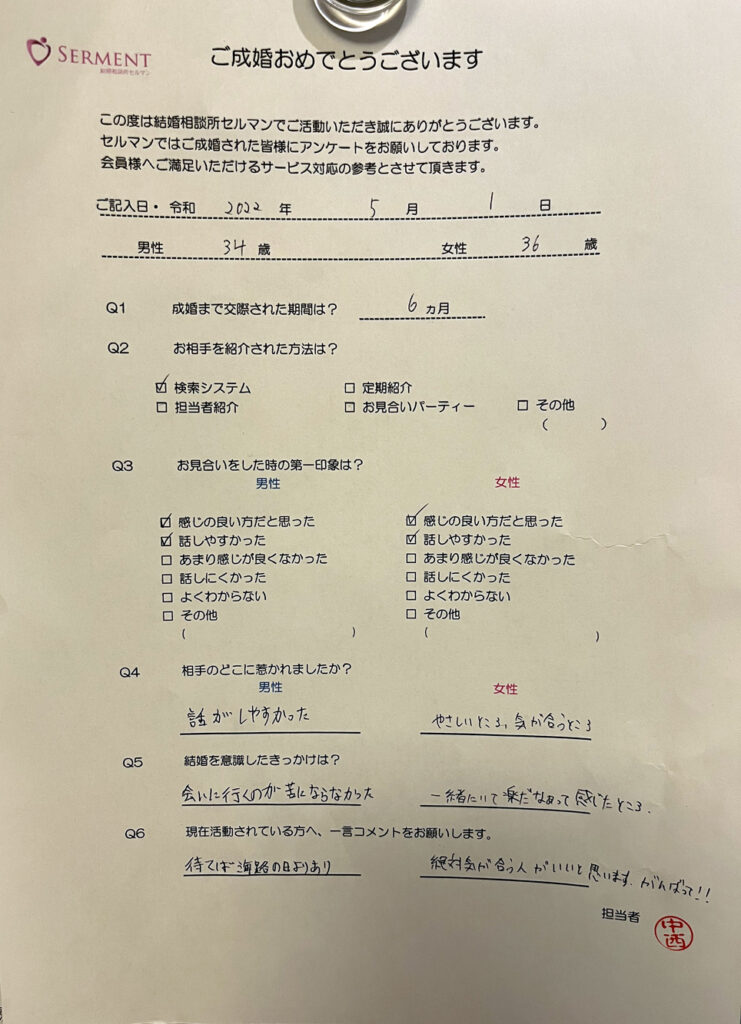 SERMENT
結婚相談所セルマン
ご成婚おめでとうございます
この度は結婚相談所セルマンでご活動いただき誠にありがとうございます。
セルマンではご成婚された皆様にアンケートをお願いしております。
会員様へご満足いただけるサービス対応の参考とさせて頂きます。
ご記入日・令和 2022 年 5 月 1 日
男性 34 歳 女性 36 歳
Q1 成婚まで交際された期間は？ 6 ヵ月
Q2 お相手を紹介された方法は？
☑ 検索システム □ 定期紹介
□ 担当者紹介 □ お見合いパーティー □ その他
( )
Q3 お見合いをした時の第一印象は？
男性 女性
☑ 感じの良い方だと思った ☑ 感じの良い方だと思った
☑ 話しやすかった ☑ 話しやすかった
□ あまり感じが良くなかった □ あまり感じが良くなかった
□ 話しにくかった □ 話しにくかった
□ よくわからない □ よくわからない
□ その他 □ その他
( ) ( )
Q4 相手のどこに惹かれましたか？
男性 女性
話がしやすかった やさしいところ、気が合うところ
Q5 結婚を意識したきっかけは？
会いに行くのが苦にならなかった 一緒にいて楽だなぁって感じたところ.
Q6 現在活動されている方へ、一言コメントをお願いします。
待てば海路の日よりあり 絶対気が合う人がいいと思います. がんばって!!
担当者 中西